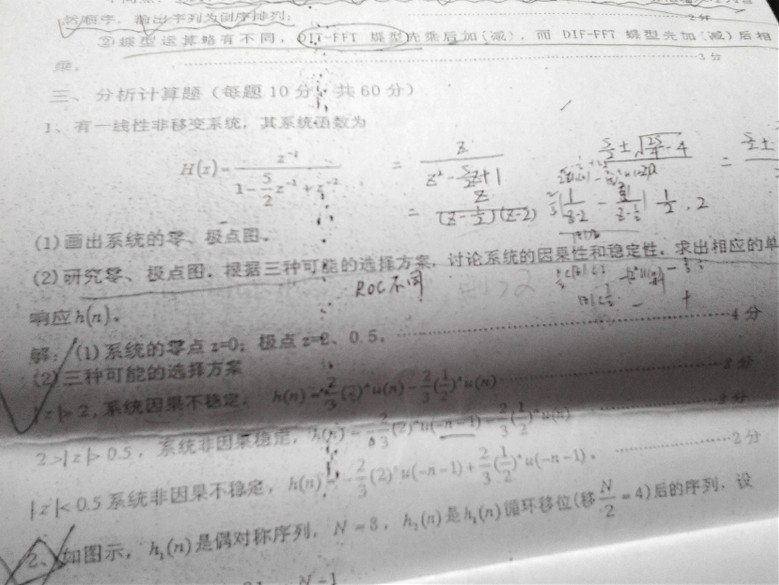 然顺序，输出序列为倒序排列; 2分
②蝶型运算略有不同，DIT-FFT 蝶型先乘后加(减)，而 DIF-FFT 蝶型先加(减)后相
乘。 3分
三、分析计算题（每题10分，共60分）
1、有一线性非移变系统，其系统函数为
H(z)= z⁻¹ / (1 - 5/2 z⁻¹ + z⁻²) = z / (z² - 5/2 z + 1)
= z / ((z-1/2)(z-2)) 1/2 , 2
(1)画出系统的零、极点图。
(2)研究零、极点图，根据三种可能的选择方案，讨论系统的因果性和稳定性，求出相应的单
ROC不同
响应h(n)。
解：(1)系统的零点 z=0；极点 z=2、0.5。 4分
(2)三种可能的选择方案
|z|>2,系统因果不稳定， h(n)= 2/3 (2)ⁿu(n) - 2/3 (1/2)ⁿu(n) 2分
2>|z|>0.5，系统非因果稳定，h(n)= -2/3 (2)ⁿu(-n-1) - 2/3 (1/2)ⁿu(n) 2分
|z|<0.5 系统非因果不稳定，h(n)= -2/3 (2)ⁿu(-n-1) + 2/3 (1/2)ⁿu(-n-1)。 2分
2、如图示，h₁(n)是偶对称序列，N=8，h₂(n)是h₁(n)循环移位(移 N/2 =4)后的序列．设
N-1